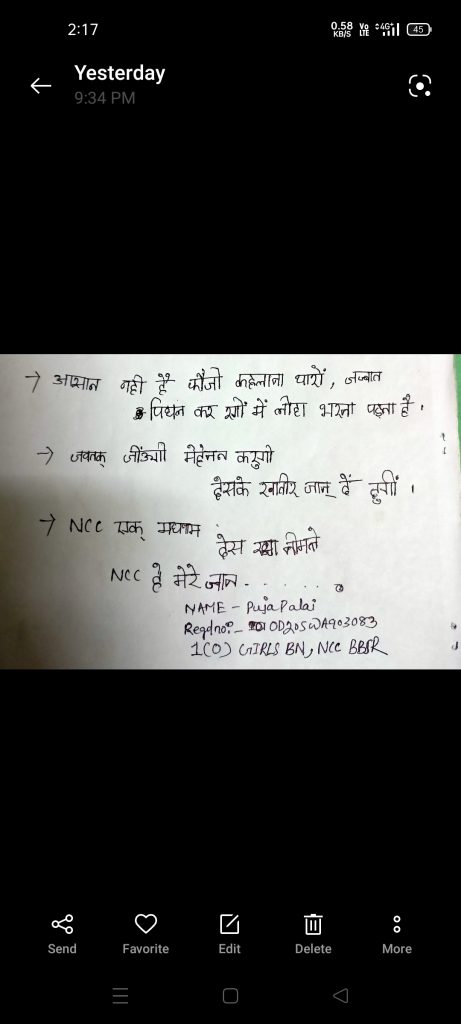 2:17
0.58 KB/S Vo LTE 4G 45
Yesterday
9:34 PM
→ आसान नही है फौजी कहलाना यारों, जज्बात
पिघल कर रगों में लोहा भरना पड़ता है ।
→ जबतक् जींऊगी मेहेनत करुगी
देसके खातीर जान् दें दुगीं ।
→ NCC एक् मध्यम
देस रक्षा नीमते
NCC है मेरे जान . . . . . .
NAME - Puja Palai
Regdno:- OD20SWA903083
1(O) GIRLS BN, NCC BBSR
Send Favorite Edit Delete More